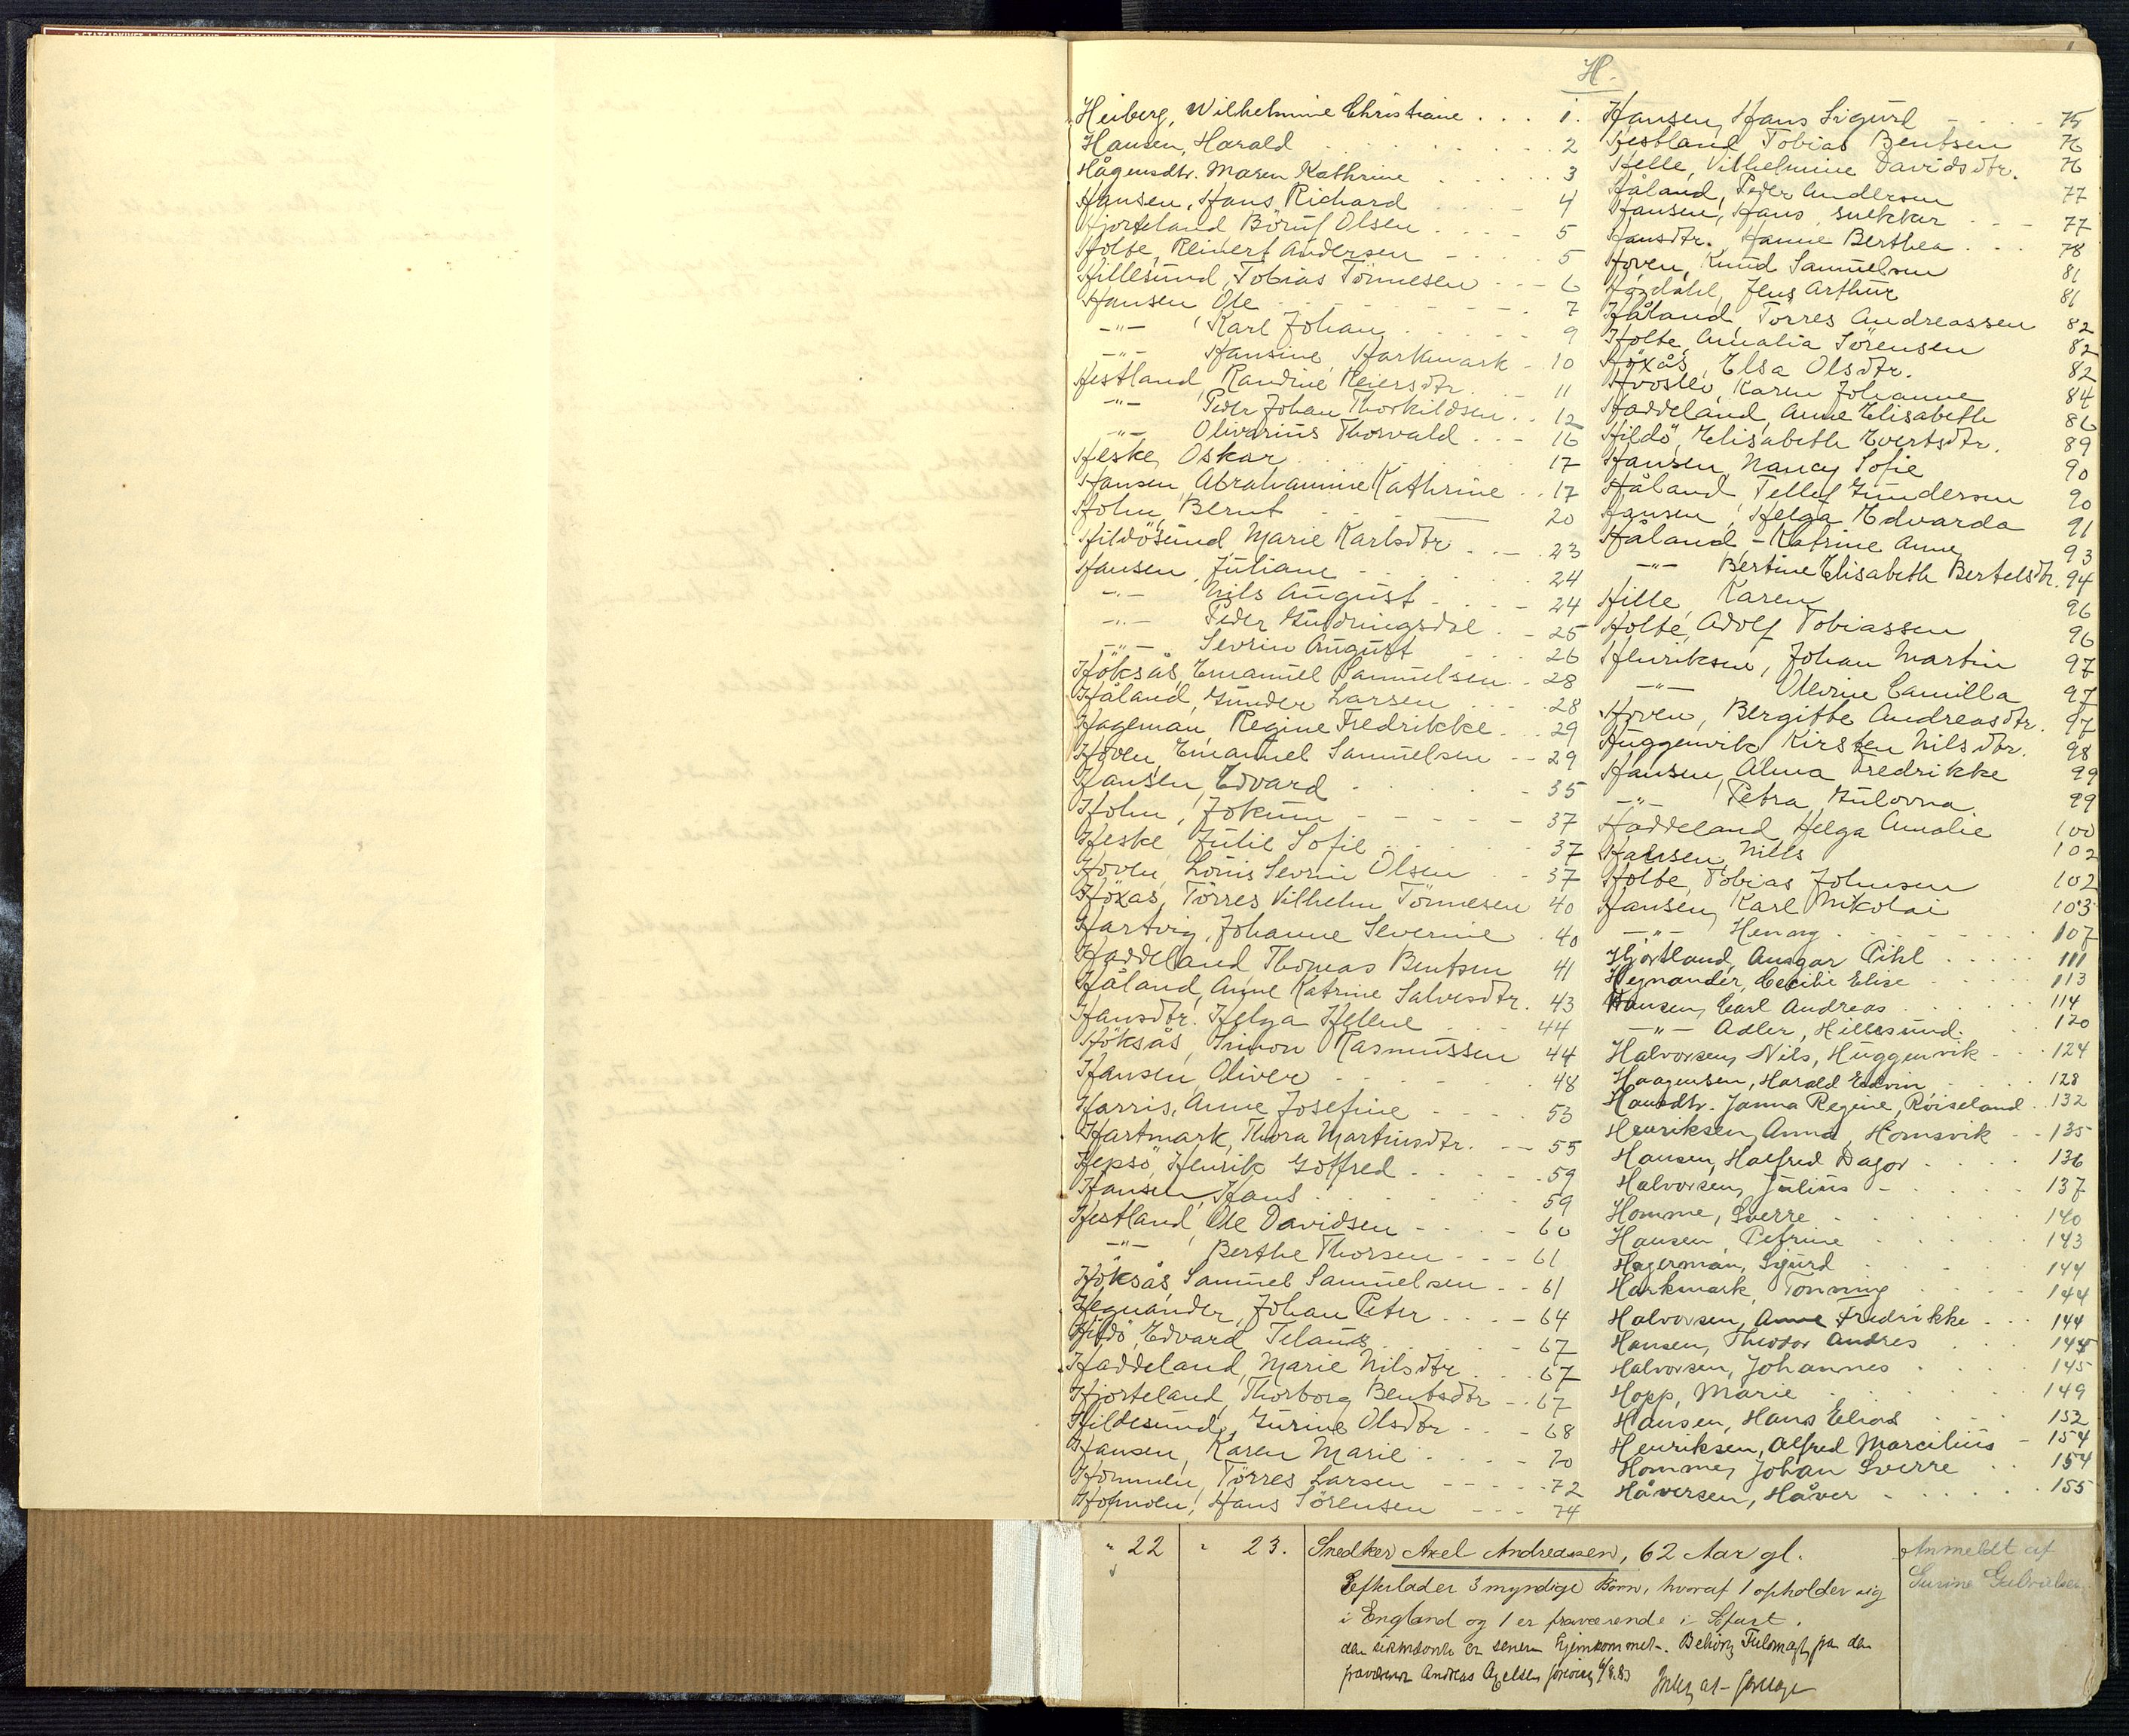 H.
Heiberg, Wilhelmine Christiane . . . 1.
Hansen, Harald . . . 2
Hågensdtr. Maren Kathrine . . . 3
Hansen, Hans Richard . . . 4
Hjorteland Börüf Olsen . . . 5
Holte, Reinert Andersen . . . 5
Hillesund, Tobias Tönnesen . . . 6
Hansen Ole . . . 7
—"— Karl Johan . . . 9
—"— Hansine, Harkmark - 10
Hestland, Randine Reiersdtr. . . 11
—"— Peder Johan Thorkildsen . . 12
—"— Olivarius Thorvald . . - 16
Heske, Oskar . . . 17
Hansen, Abrahamine Kathrine . . 17
Holm, Bernt . . . 20
Hildösund Marie Karlsdtr . . - 23
Hansen, Juliane . . . 24
—"— Nils August . . . 24
—"— Peder Guldringsdal . - 25
—"— Sevrin August . . . 26
Höksås, Emanuel Samuelsen . . 28
Håland, Gunder Larsen . . . 28
Hageman, Regine Fredrikke . . . 29
Hoven, Emanuel Samuelsen - - 29
Hansen, Edvard . . . 35
Holm, Jokum - - - - 37
Heske Julie Sofie . . . 37
Hoven, Louis Sevrin Olsen . - 37
Höxas, Törres Vilhelm Tönnesen 40
Hartvig, Johanne Severine . 40
Haddeland Thomas Bentsen 41
Håland, Anne Katrine Salvesdtr. 43
Hansdtr. Helga Helene . . . 44
Höksås, Simon Rasmussen 44
Hansen, Oliver . . . 48
Harris, Anne Josefine - - - 53
Hartmark, Thora Martinsdtr. - - 55
Hepsö, Henrik Gotfred . . . 59
Hansen, Hans . . . 59
Hestland, Ole Davidsen - - - 60
—"— Berthe Thorsen - - - 61
Höksås, Samuel Samuelsen . . 61
Hegnander, Johan Peter . . . - 64
Hildö, Edvard . . . 67
Haddeland, Marie Nilsdtr . . . 67
Hjorteland, Thorborg Bentsdtr - . 67
Hildesund, Gurine Olsdtr - - - 68
Hansen, Karen Marie . . . 70
Hommen, Törres Larsen - - - - 72
Hans Sörensen - - - 74
Hansen, Hans Sigurd - . . . 75
Hestland, Tobias Bentsen 76
Helle, Vilhelmine Davidsdtr. 76
Håland, Peder Andersen 77
Hansen, Hans snekker . . - 77
Hansdtr. Hanne Berthea . . . 78
Hoven, Knud Samuelsen 81
Høidahl, Jens Arthur 81
Håland, Törres Andreassen 82
Holte, Amalia Sörensen 82
Höxås, Elsa Olsdtr. 82
Hvoslev, Karen Johanne 84
Haddeland, Anne Elisabeth 86
Hildö, Elisabeth Evertsdtr. 89
Hansen, Nancy Sofie 90
Håland, Tellef Gundersen 90
Hansen, Helga Edvarda 91
Håland, - Katrine Anne 93
—"— Bertine Elisabeth Bertelsdtr. 94
Hille, Karen 96
Holte, Adolf Tobiassen 96
Henriksen, Johan Martin 97
—"— Olevine Camilla 97
Hoven, Bergitte Andreasdtr. 97
Huggenvik Kirsten Nilsdtr. 98
Hansen, Alma Fredrikke 99
—"— Petra Gulovna 99
Haddeland, Helga Amalie 100
Hansen, Nills 102
Holte, Tobias Johnsen 102
Hansen, Karl Nikolai 103
—"— Henny . . . 107
Hjortland, Ansgar Pihl . . . 111
Hejnander, Cecilie Elise . . . 113
Hansen, Carl Andreas . . . 114
—"— Adler, Hillesund. . . 120
Halvorsen, Nils, Huggenvik - . . 124
Haagensen, Harald Edvin . . . 128
Hansdtr. Janna Regine, Röiseland . 132
Henriksen, Anna, Homsvik - - 135
Hansen, Halfred Dagor . . . 136
Halvorsen, Julius - . . . 137
Homme, Sverre . . . 140
Hansen, Petrine . . . 143
Hagerman, Sigurd . . . 144
Harkmark, Tonning . . . 144
Halvorsen, Anne Fredrikke . . . 144
Hansen, Theodor Andres . . . 144
Halvorsen, Johannes . . . 145
Hopp, Marie . . . 149
Hansen, Hans Elias . . . 152
Henriksen, Alfred Marcilius - 154
Homme, Johan Sverre . . 154
Håversen, Håver . . . 155
" 22 " 23. Snedker Axel Andreassen, 62 Aar gl.
Efterlader 3 myndige Børn, hvoraf 1 opholder sig
i England og 1 er fraværende i Sfart.
den sidstnævnte er senere hjemkommet. Behörig Fuldmagt fra den
fraværende Andreas Axelsen 6/8.83
Anmeldt af
Surine Gabrielsen